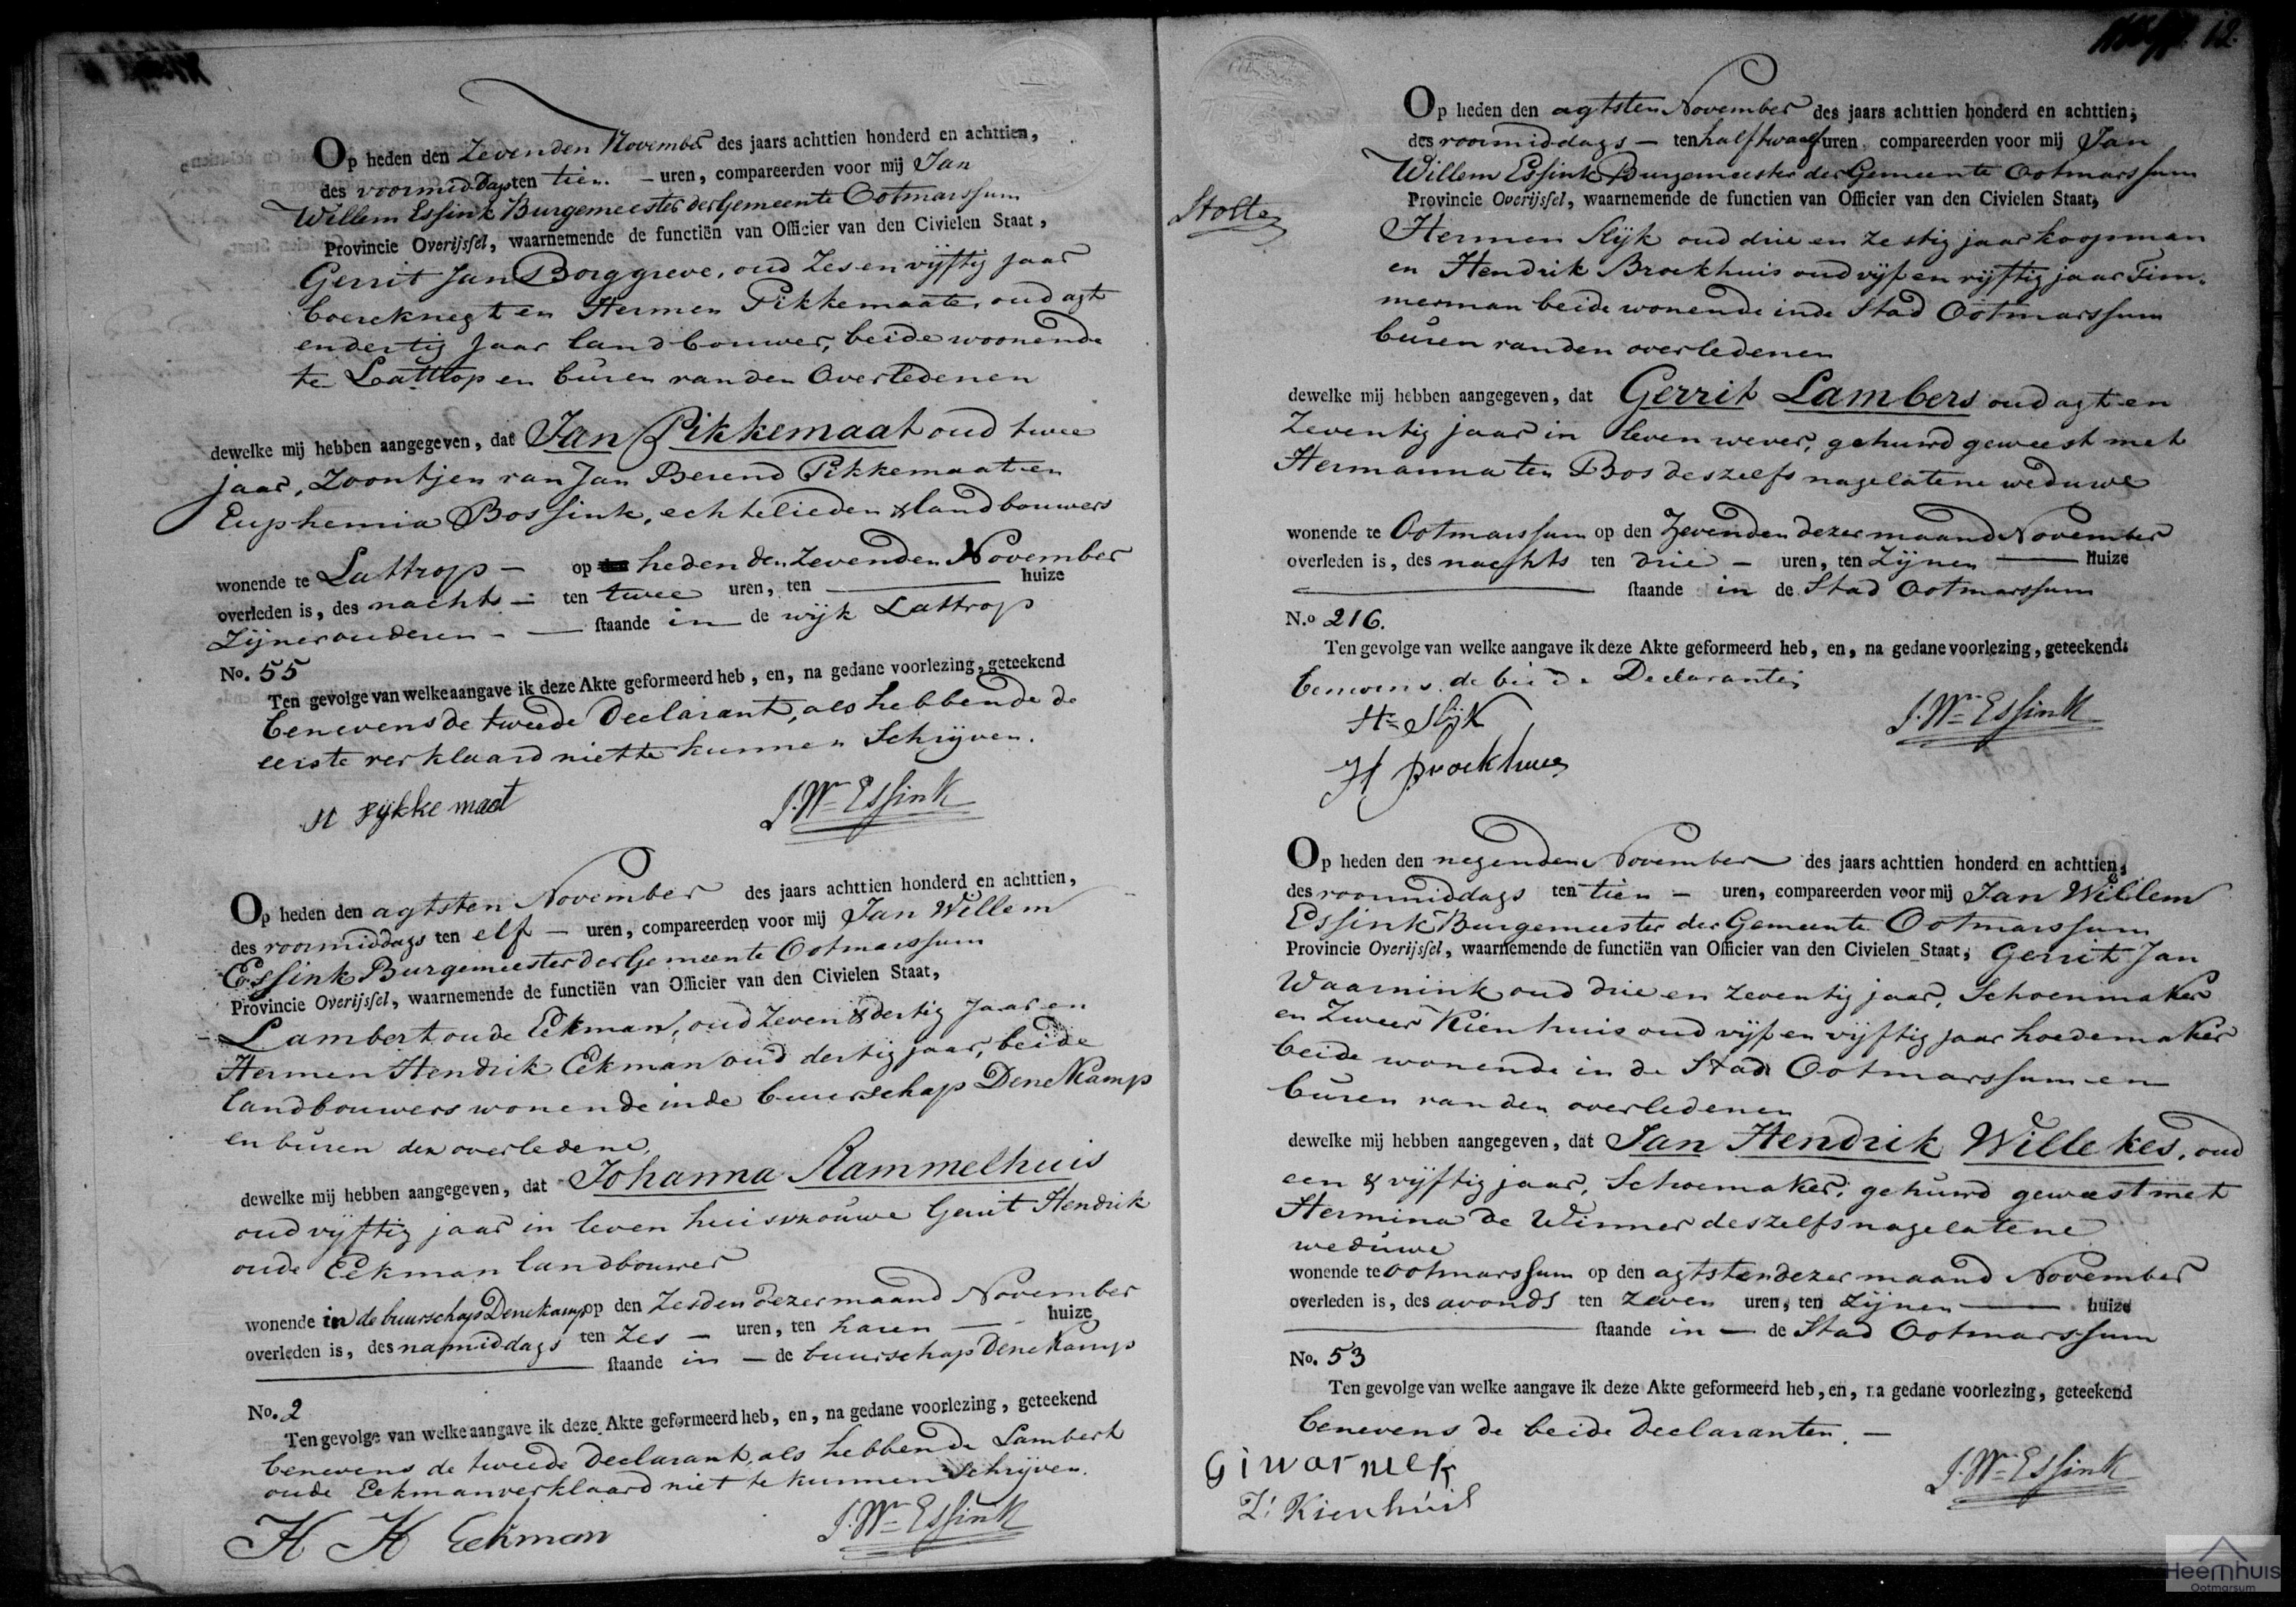 Op heden den Zevenden November des jaars achttien honderd en achttien,
des voormiddags ten tien — uren, compareerden voor mij Jan
Willem Essink Burgemeester der Gemeente Ootmarssum
Provincie Overijssel, waarnemende de functiën van Officier van den Civielen Staat,
Gerrit Jan Borggreve, oud Zes en vijftig jaar
boereknegt en Hermen Pikkemaate, oud agt
en dertig jaar landbouwer, beide woonende
te Lattrop en buren van den Overledenen
dewelke mij hebben aangegeven, dat Jan Pikkemaat oud twee
jaar, Zoontjen van Jan Berend Pikkemaat en
Euphemia Bossink, echtelieden & landbouwers
wonende te Lattrop — op heden den Zevenden November
overleden is, des nachts — ten twee uren, ten — huize
Zijner ouderen — staande in de wijk Lattrop
No. 55
Ten gevolge van welke aangave ik deze Akte geformeerd heb, en, na gedane voorlezing, geteekend
benevens de tweede Declarant, als hebbende de
eerste verklaard niet te kunnen Schrijven.
H pijkke maat J. Wm Essink
Op heden den agtsten November des jaars achttien honderd en achttien,
des voormiddags ten elf — uren, compareerden voor mij Jan Willem
Essink Burgemeester der Gemeente Ootmarssum
Provincie Overijssel, waarnemende de functiën van Officier van den Civielen Staat,
Lambert oude Eekman, oud Zeven & dertig Jaar en
Hermen Hendrik Eekman oud dertig jaar, beide
landbouwers wonende in de buurschap Denekamp
en buren der overledene,
dewelke mij hebben aangegeven, dat Johanna Rammelhuis
oud vijftig jaar in leven huisvrouwe Gerrit Hendrik
oude Eekman landbouwer
wonende in de buurschap Denekamp op den Zesden dezer maand November
overleden is, des namiddags ten Zes — uren, ten haren — huize
— staande in — de buurschap Denekamp
No. 2
Ten gevolge van welke aangave ik deze Akte geformeerd heb, en, na gedane voorlezing, geteekend
benevens de tweede Declarant, als hebbende Lambert
oude Eekman verklaard niet te kunnen Schrijven.
H H Eekman J. Wm Essink
12.
Stolte
Op heden den agtsten November des jaars achttien honderd en achttien,
des voormiddags — ten half twaalf uren, compareerden voor mij Jan
Willem Essink Burgemeester der Gemeente Ootmarssum
Provincie Overijssel, waarnemende de functien van Officier van den Civielen Staat,
Hermen Slijk oud drie en zestig jaar koopman
en Hendrik Broekhuis oud vijf en vijftig jaar Tim-
merman beide wonende in de Stad Ootmarssum
buren van den overledenen
dewelke mij hebben aangegeven, dat Gerrit Lambers oud agt en
Zeventig jaar in leven wever, gehuwd geweest met
Hermanna ten Bos deszelfs nagelatene weduwe
wonende te Ootmarssum op den Zevenden dezer maand November
overleden is, des nachts ten drie — uren, ten Zijnen — huize
— staande in de Stad Ootmarssum
N.o 216.
Ten gevolge van welke aangave ik deze Akte geformeerd heb, en, na gedane voorlezing, geteekend:
benevens de beide Declaranten
Hs Slijk J. Wm Essink
H Broekhues
Op heden den negenden November des jaars achttien honderd en achttien,
des voormiddags ten tien — uren, compareerden voor mij Jan Willem
Essink Burgemeester der Gemeente Ootmarssum
Provincie Overijssel, waarnemende de functiën van Officier van den Civielen Staat, Gerrit Jan
Waarnink oud drie en zeventig jaar, Schoenmaker
en Zweer Kienhuis oud vijf en vijftig jaar hoedemaker
beide wonende in de Stad Ootmarssum en
buren van den overledenen
dewelke mij hebben aangegeven, dat Jan Hendrik Willekes, oud
een & vijftig jaar, Schoemaker, gehuwd geweest met
Hermina de Winner deszelfs nagelatene
weduwe
wonende te Ootmarssum op den agtsten dezer maand November
overleden is, des avonds ten zeven uren, ten Zijnen — huize
— staande in — de Stad Ootmarssum
No. 53
Ten gevolge van welke aangave ik deze Akte geformeerd heb, en, na gedane voorlezing, geteekend
benevens de beide Declaranten. —
J. Wm Essink
Z: Kienhuis
Heemhuis
Ootmarsum